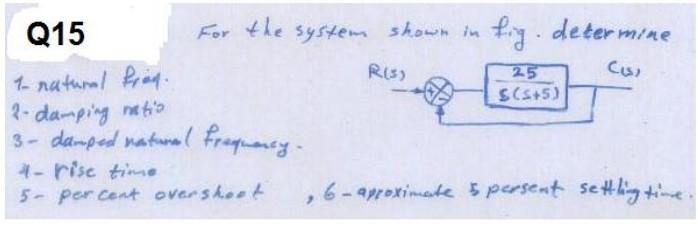 Q15
For the system shown in fig. determine
R(s)
+
-
25
S(S+5)
C(s)
1- natural freq.
2- damping ratio
3- damped natural frequency.
4- rise time
5- per cent overshoot , 6- aproximate 5 persent settling time.